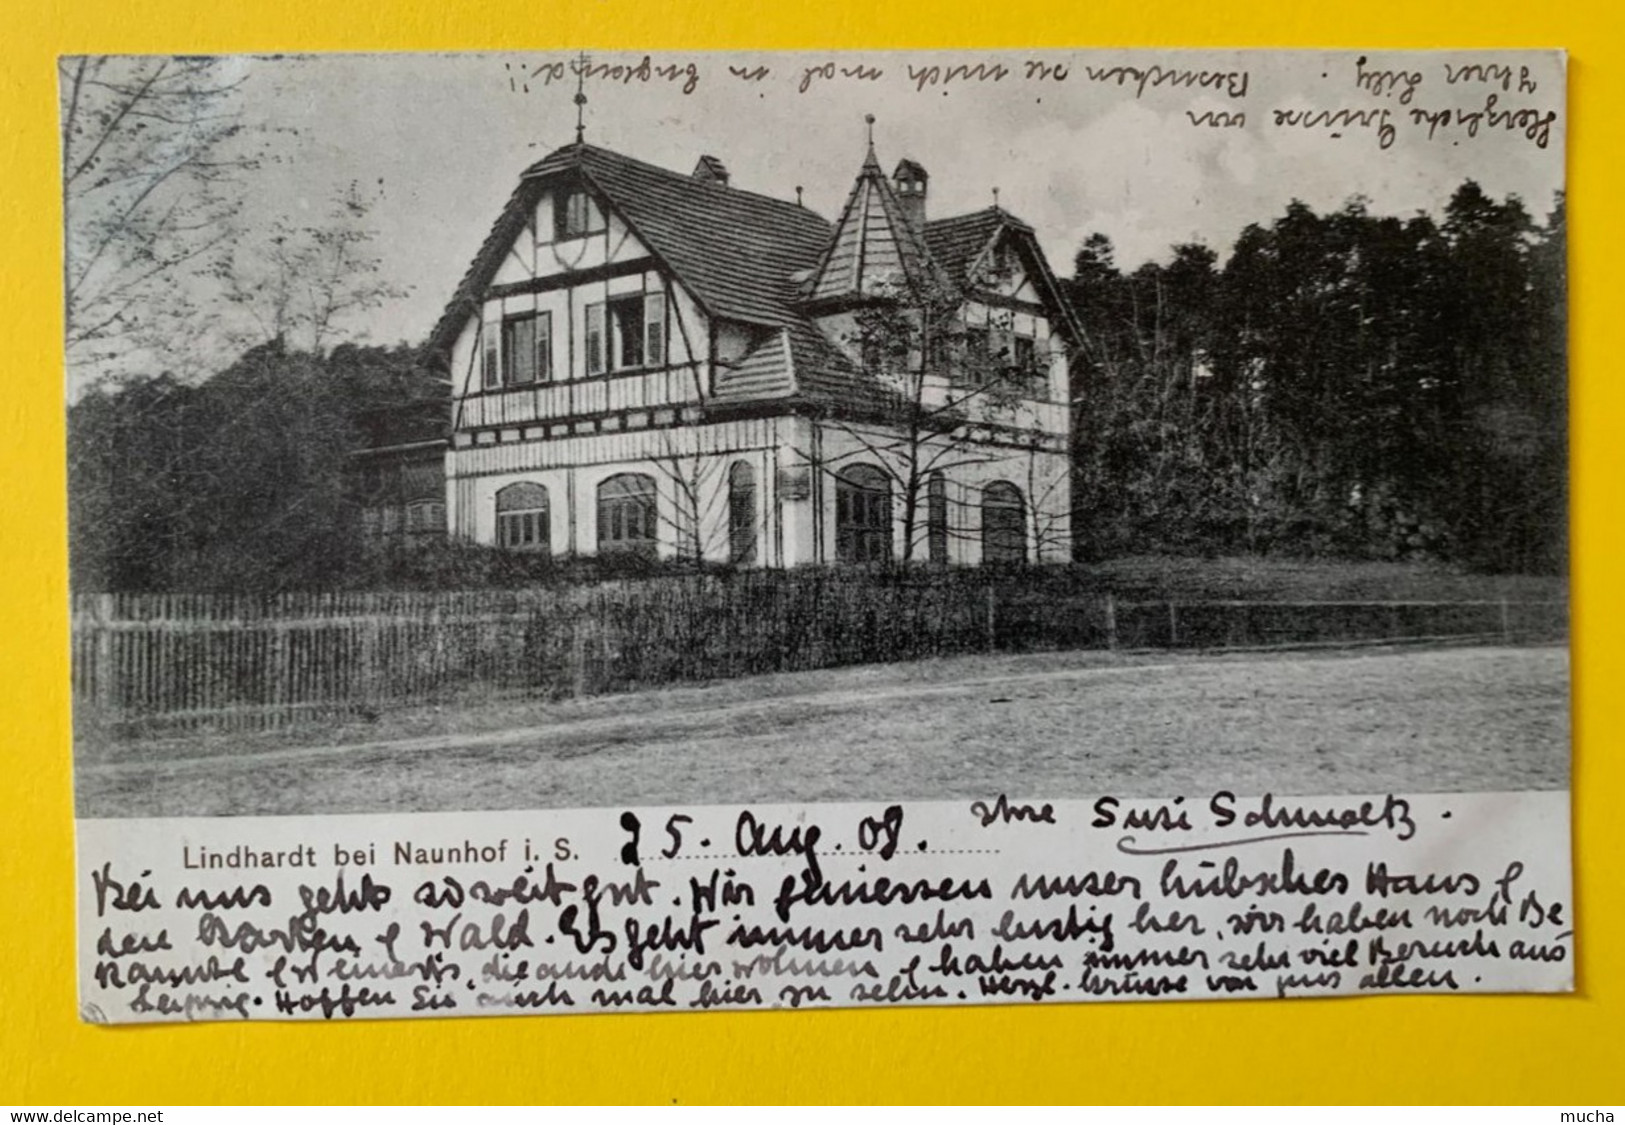 Herzliche Grüsse von
Ihrer Lily. Besuchen sie mich mal in England!!
Lindhardt bei Naunhof i. S. 25. Aug. 08. Ihre Susi Schmaltz.
Bei uns geht's soweit gut. Wir geniessen unser hübsches Haus &
den Garten & Wald. Es geht immer sehr lustig her, wir haben noch Be
kannte, die auch hier wohnen & haben immer sehr viel Besuch aus
Leipzig. Hoffen Sie auch mal hier zu sehn. Herzl. Grüsse von uns allen.
www.delcampe.net
mucha